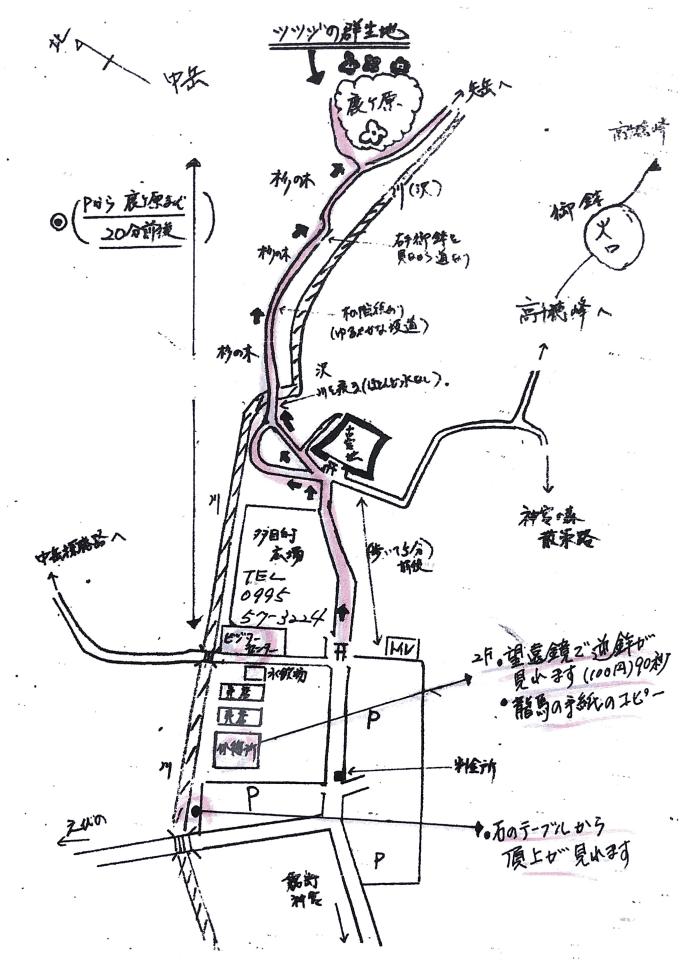 ツツジの群生地
北
中岳
鹿ケ原
矢岳へ
高千穂峰
杉の木
川(沢)
御鉢
火口
Pから鹿ケ原まで
20分前後
杉の木
右手御鉢を
見ながら進む
高千穂峰へ
(ゆるやかな坂道)
杉の木
沢
川を渡る(ほとんど水なし).
古宮址
川
多目的
広場
TEL
0995
57-3224
(歩いて5分)
前後
神宮の森
散策路
中岳探勝路へ
ビジター
センター
MV
自販機
売店
売店
休憩所
2F.望遠鏡で逆鉾が
見れます(100円)90秒
•龍馬の手紙のコピー
P
川
料金所
P
えびの
•石のテーブルから
頂上が見れます
P
霧島
神宮